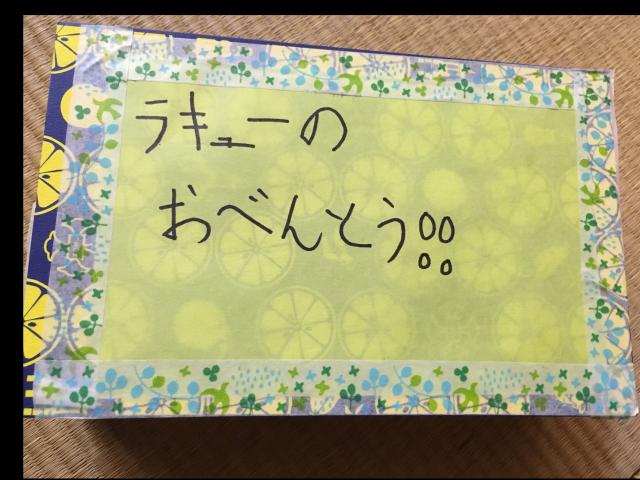 ラキューの
おべんとう!!